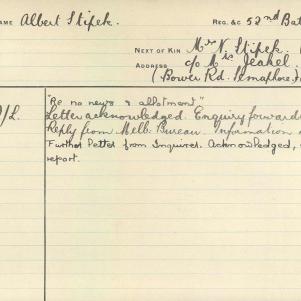 AME Albert Stipek. REG. &C 52nd Bat
NEXT OF KIN Mrs N. Stipek.
ADDRESS c/o Mrs Jeakel.
(Bower Rd. Semaphore,
/L. "Re no news & allotment"
Letter acknowledged. Enquiry forward
Reply from Melb. Bureau. Information
Further letter from Inquirer. Acknowledged,
report.